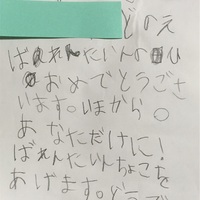 どのえ
ばれんたいんのひ
おめでとうござ
います。いまから。
あなただけに!
ばれんたいんちょこを
あげます。どうぞ